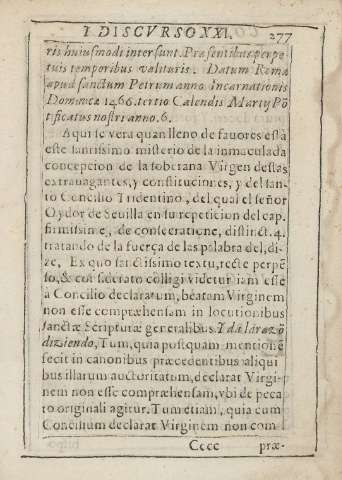 I DISCVRSO XXI. 277
ris huiusmodi intersunt. Præsentibus perpe
tuis temporibus valituris. Datum Romæ
apud sanctum Petrum anno Incarnationis
Dominicæ 1466. tertio Calendis Martij Põ
tificatus nostri anno. 6.
Aqui se vera quan lleno de fauores està
este santissimo misterio de la inmaculada
concepcion de la soberana Virgen destas
extrauagantes, y constituciones, y del san-
to Concilio Tridentino, del qual el señor
Oydor de Seuilla en su repeticion del cap.
firmissime, de consecratione, distinct. 4.
tratando de la fuerça de las palabra del, di-
ze, Ex quo sanctissimo textu, recte perpẽ
so, & considerato colligi videtur iam esse
à Concilio declaratum, beatam Virginem
non esse compræhensam in locutionibus
sanctæ Scripturæ generalibus. I da la razõ
diziendo, Tum, quia postquam mentionẽ
fecit in canonibus præcedentibus aliqui
bus illarum auctoritatum, declarat Virgi-
nem non esse compræhensam, vbi de pecca
to originali agitur. Tum etiam, quia cum
Concilium declarat Virginem non com-
Cccc præ-